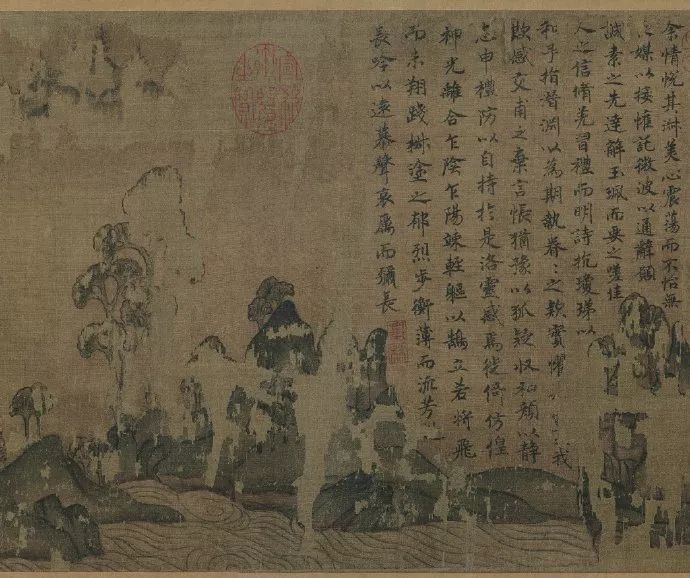 余情悅其淑美心震蕩而不怡無
媒以接懽託微波以通辭願
誠素之先達解玉珮而要之嗟佳
人之信脩羌習禮而明詩抗瓊珶以
和予指潛淵以為期執眷〻之款實懼我
欺感交甫之棄言悵猶豫以狐疑收和顏以靜
志申禮防以自持於是洛靈感焉徙倚彷徨
神光離合乍陰乍陽竦輕軀以鶴立若將飛
而未翔踐椒塗之郁烈步衡薄而流芳
長吟以遠慕聲哀厲而彌長